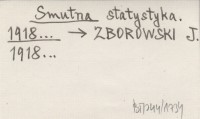 Smutna statystyka.
1918... → ZBOROWSKI J.
1918...